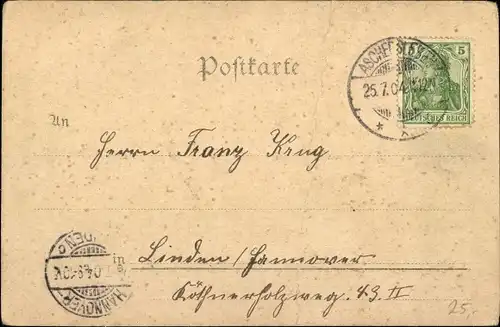 Postkarte
ASCHERSLEBEN
25.7.04
5
DEUTSCHES REICH
An
Herrn Franz Krug
in
Linden / Hannover
Köthnerholzweg. 43 II
HANNOVER
25.-